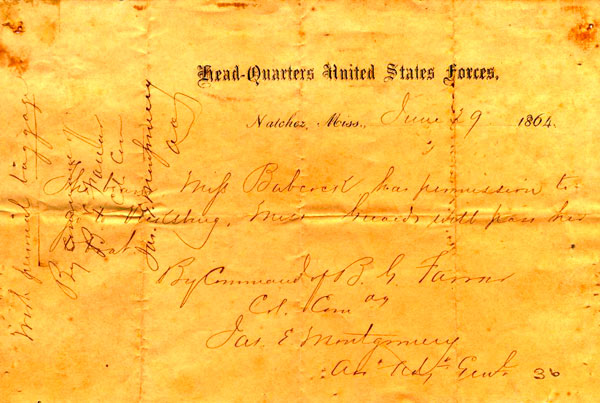 Head-Quarters United States Forces,
Natchez, Miss., June 29 1864.
The bearer Miss Babcock has permission to
Vicksburg, Miss Guards will pass her
By Command of B. G. Farrar
Col. Comg
Jas. E Montgomery
Ass Adj Genl. 36
With personal baggage
By Command of
B. G. Farrar
Col Com
Jas. E Montgomery